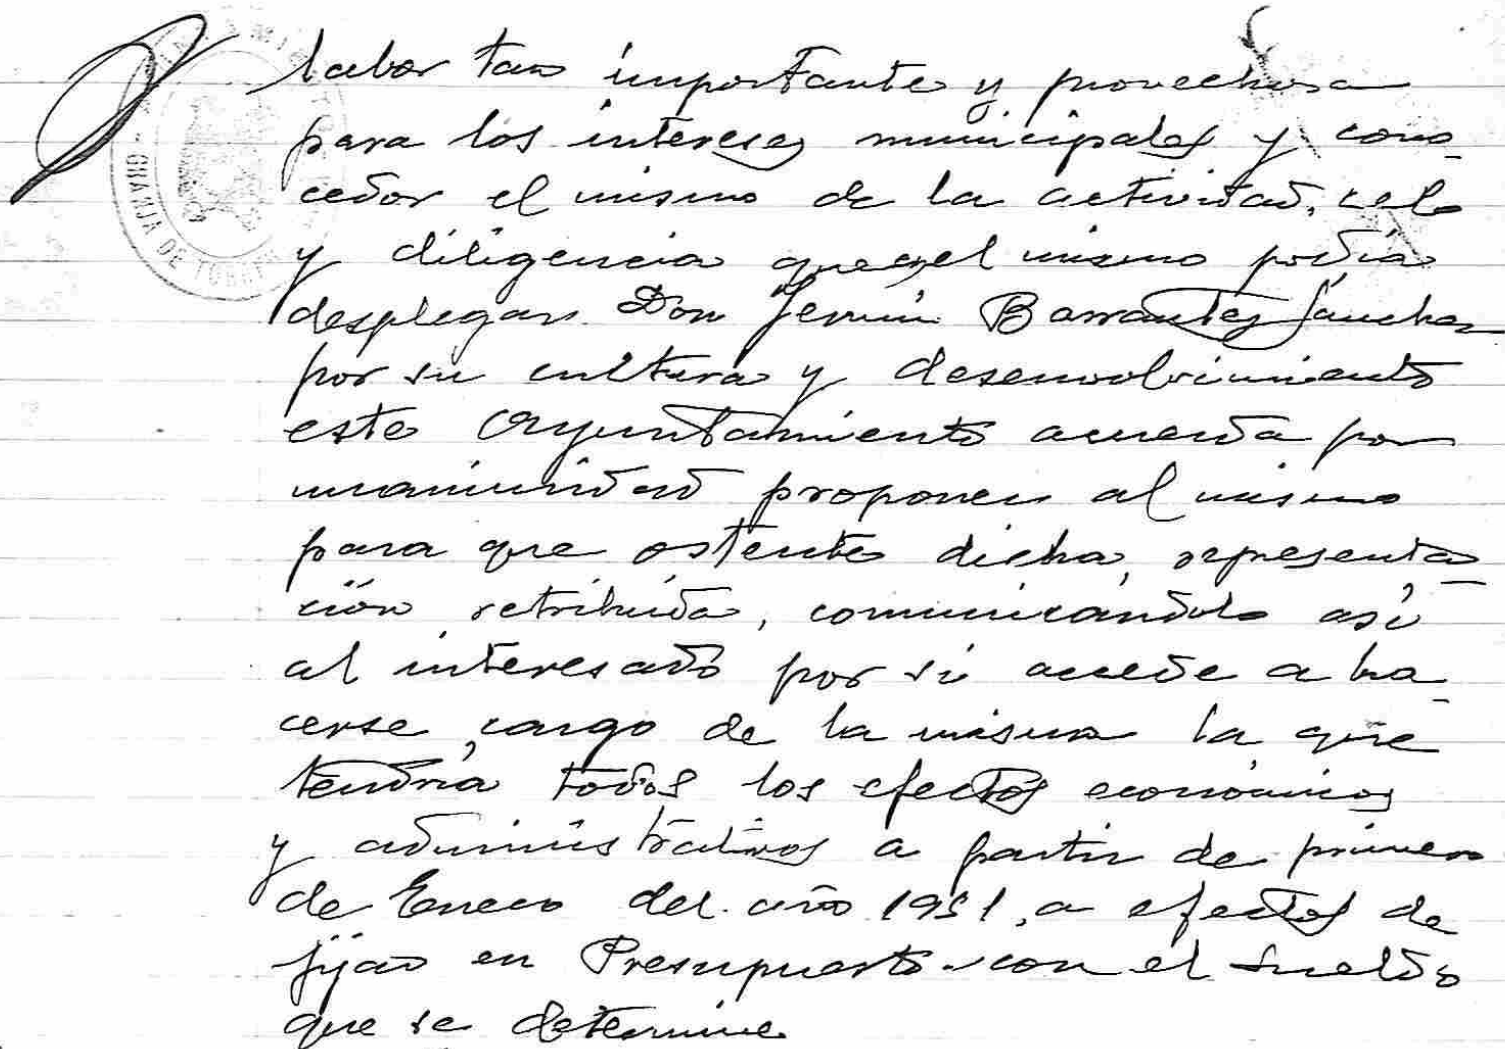 labor tan importante y provechosa
para los intereses municipales y cono-
cedor el mismo de la actividad, celo
y diligencia que el mismo podia
desplegar Don Fermin Barrantes Sanchez
por su cultura y desenvolvimiento
este Ayuntamiento acuerda por
unanimidad proponer al mismo
para que ostente dicha representa-
ción retribuida, comunicándolo así
al interesado por si accede a ha-
cerse cargo de la misma la que
tendría todos los efectos económicos
y administrativos a partir de primero
de Enero del año 1951, a efectos de
fijar en Presupuesto con el sueldo
que se determine
GRANJA DE TORRE